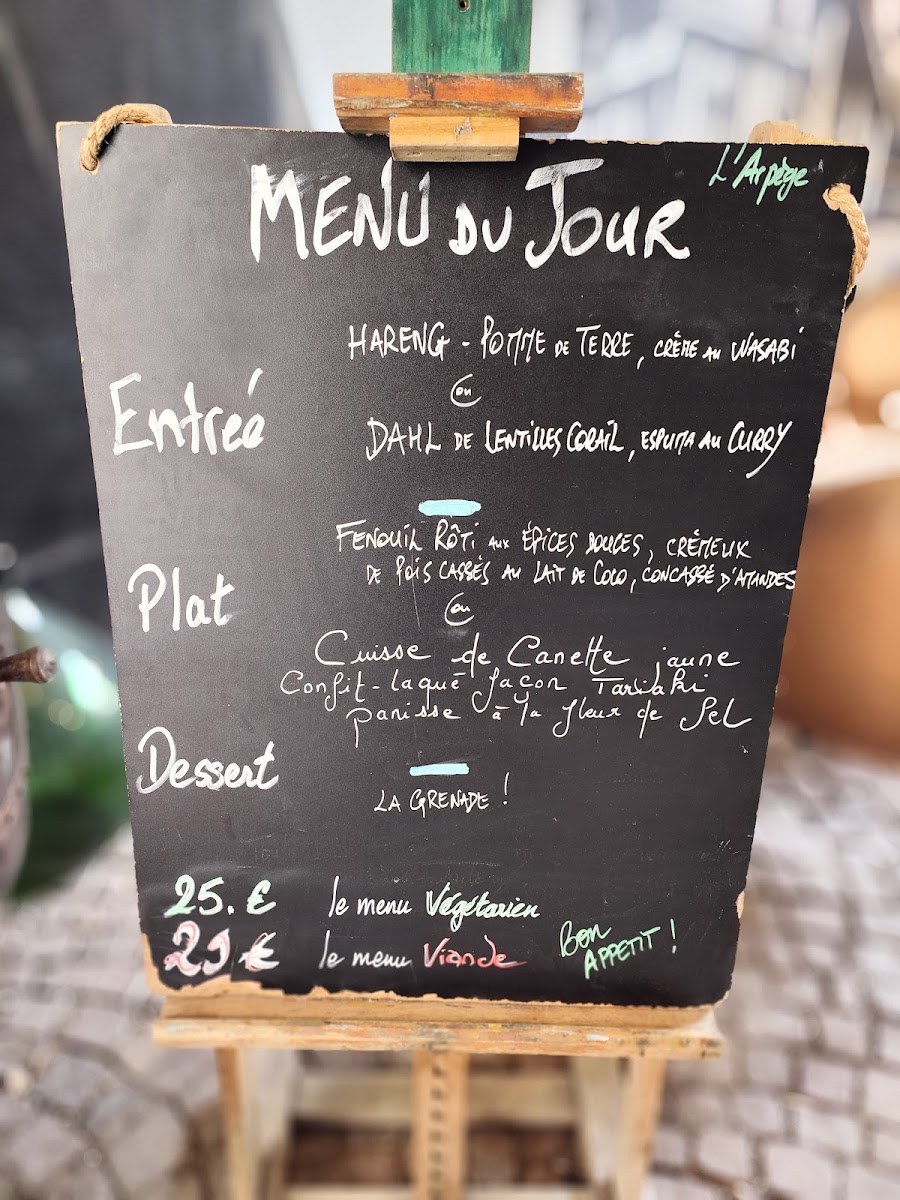 L'Arpège
MENU DU JOUR
Entrée
HARENG - POMME DE TERRE, CRÈME AU WASABI
ou
DAHL DE LENTILLES CORAIL, ESPUMA AU CURRY
Plat
FENOUIL RÔTI AUX ÉPICES DOUCES, CRÉMEUX
DE POIS CASSÉS AU LAIT DE COCO, CONCASSÉ D'AMANDES
ou
Cuisse de Canette jaune
Confit-laqué façon Tariaki
panisse à la fleur de Sel
Dessert
LA GRENADE !
25.€ le menu Végétarien
29.€ le menu Viande
BON
APPETIT !